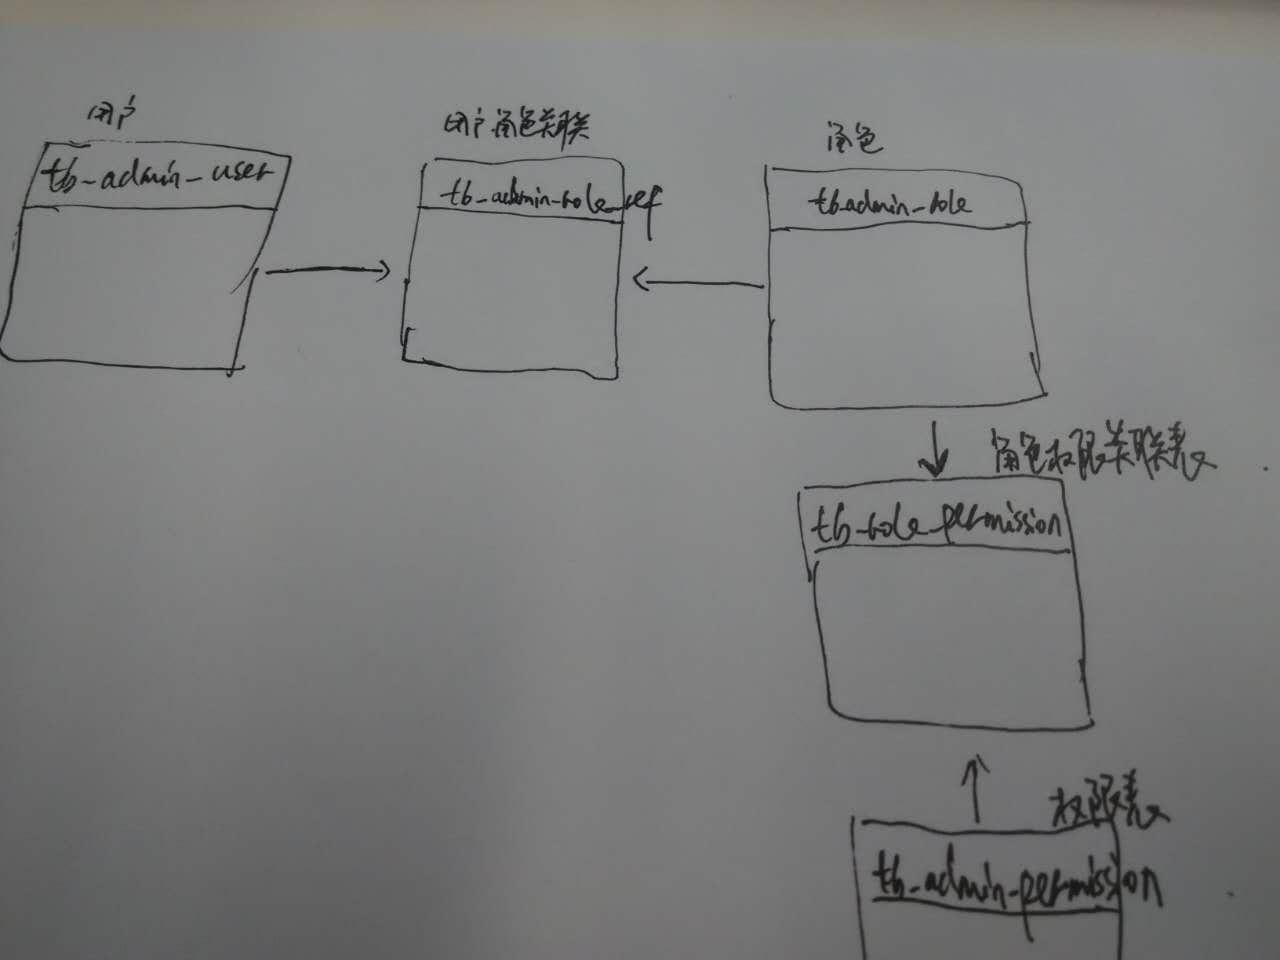 用户
tb_admin_user
用户角色关联
tb_admin_role_ref
角色
tb_admin_role
角色权限关联表
tb_role_permission
权限表
tb_admin_permission